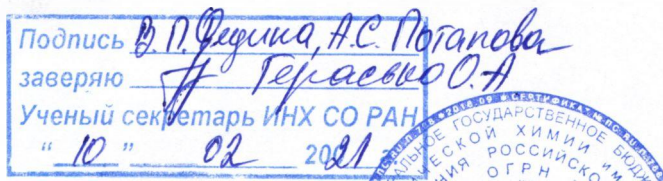 Подпись В.П. Федина, А.С. Потапова
заверяю Герасько О.А
Ученый секретарь ИНХ СО РАН
“ 10 ” 02 2021
ГОСУДАРСТВЕННОЕ БЮДЖ
ЧЕСКОЙ ХИМИИ ИМ
РОССИЙСКО
ОГРН